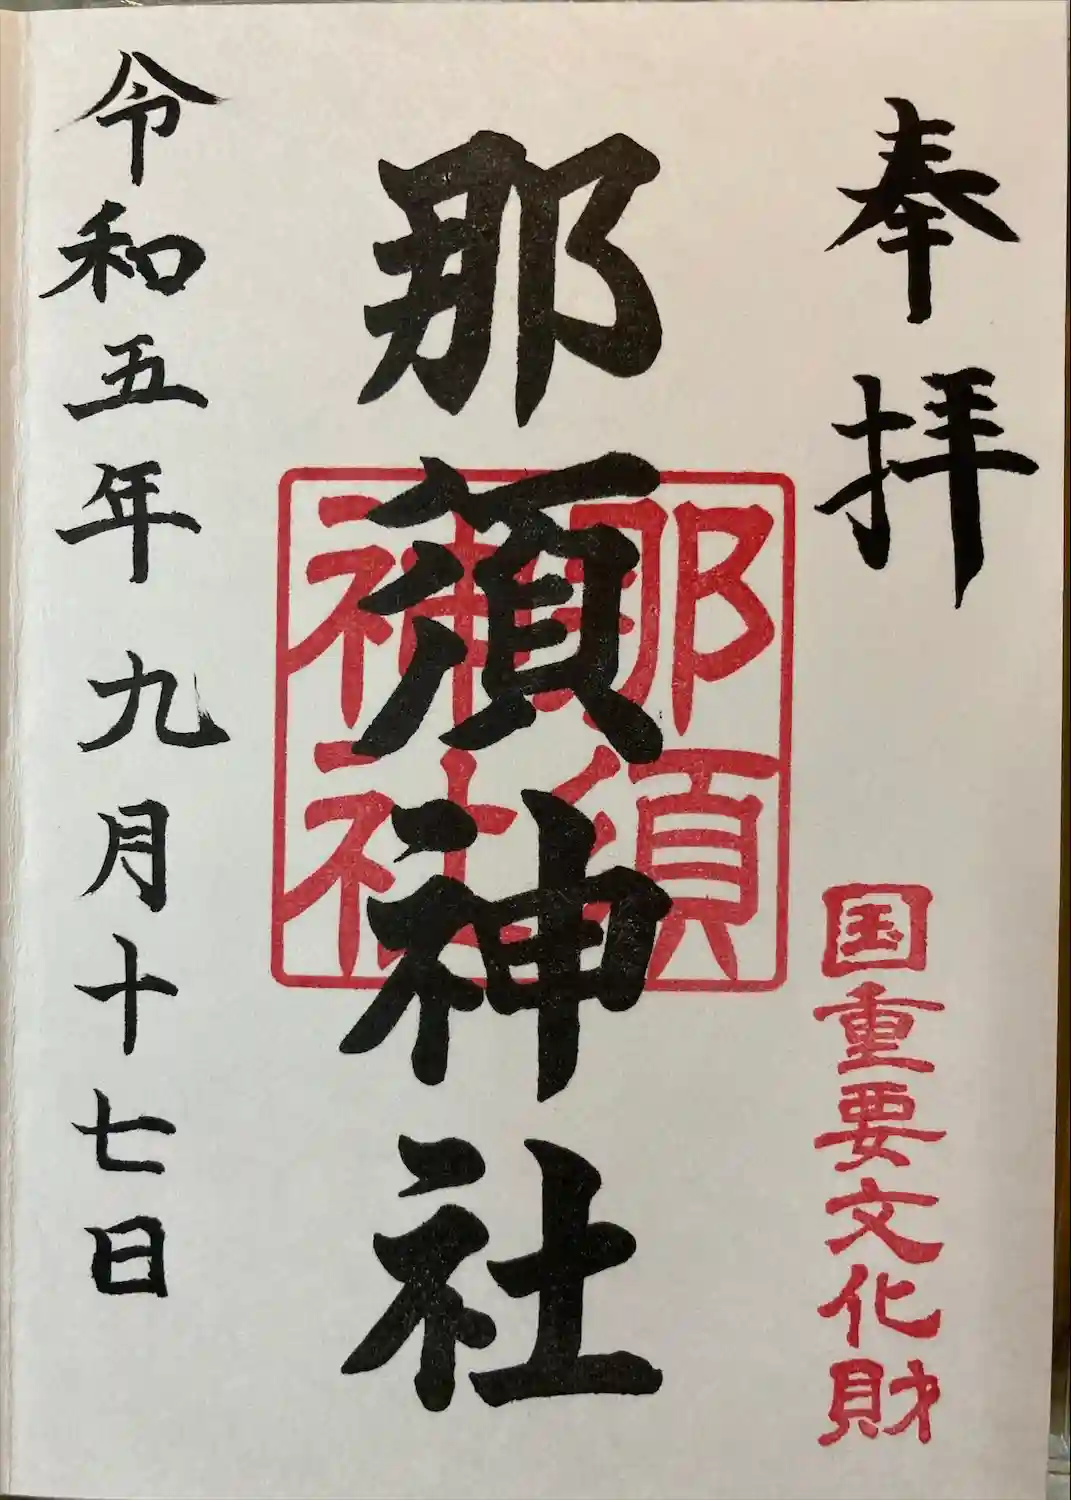 奉拝
国重要文化財
那須神社
那須
神社
令和五年九月十七日